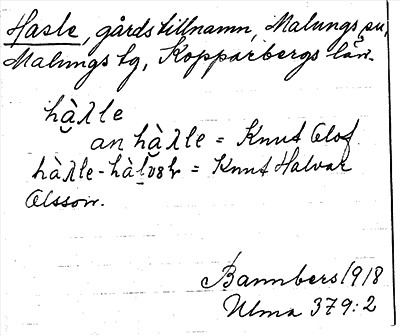 Hasle, gårdstillnamn, Malungs sn,
Malungs tg, Kopparbergs län.
hàλle
an hàλle = Knut Olof
hàλle- = Knut Halvar
Olsson.
Bannbers 1918
Ulma 379:2